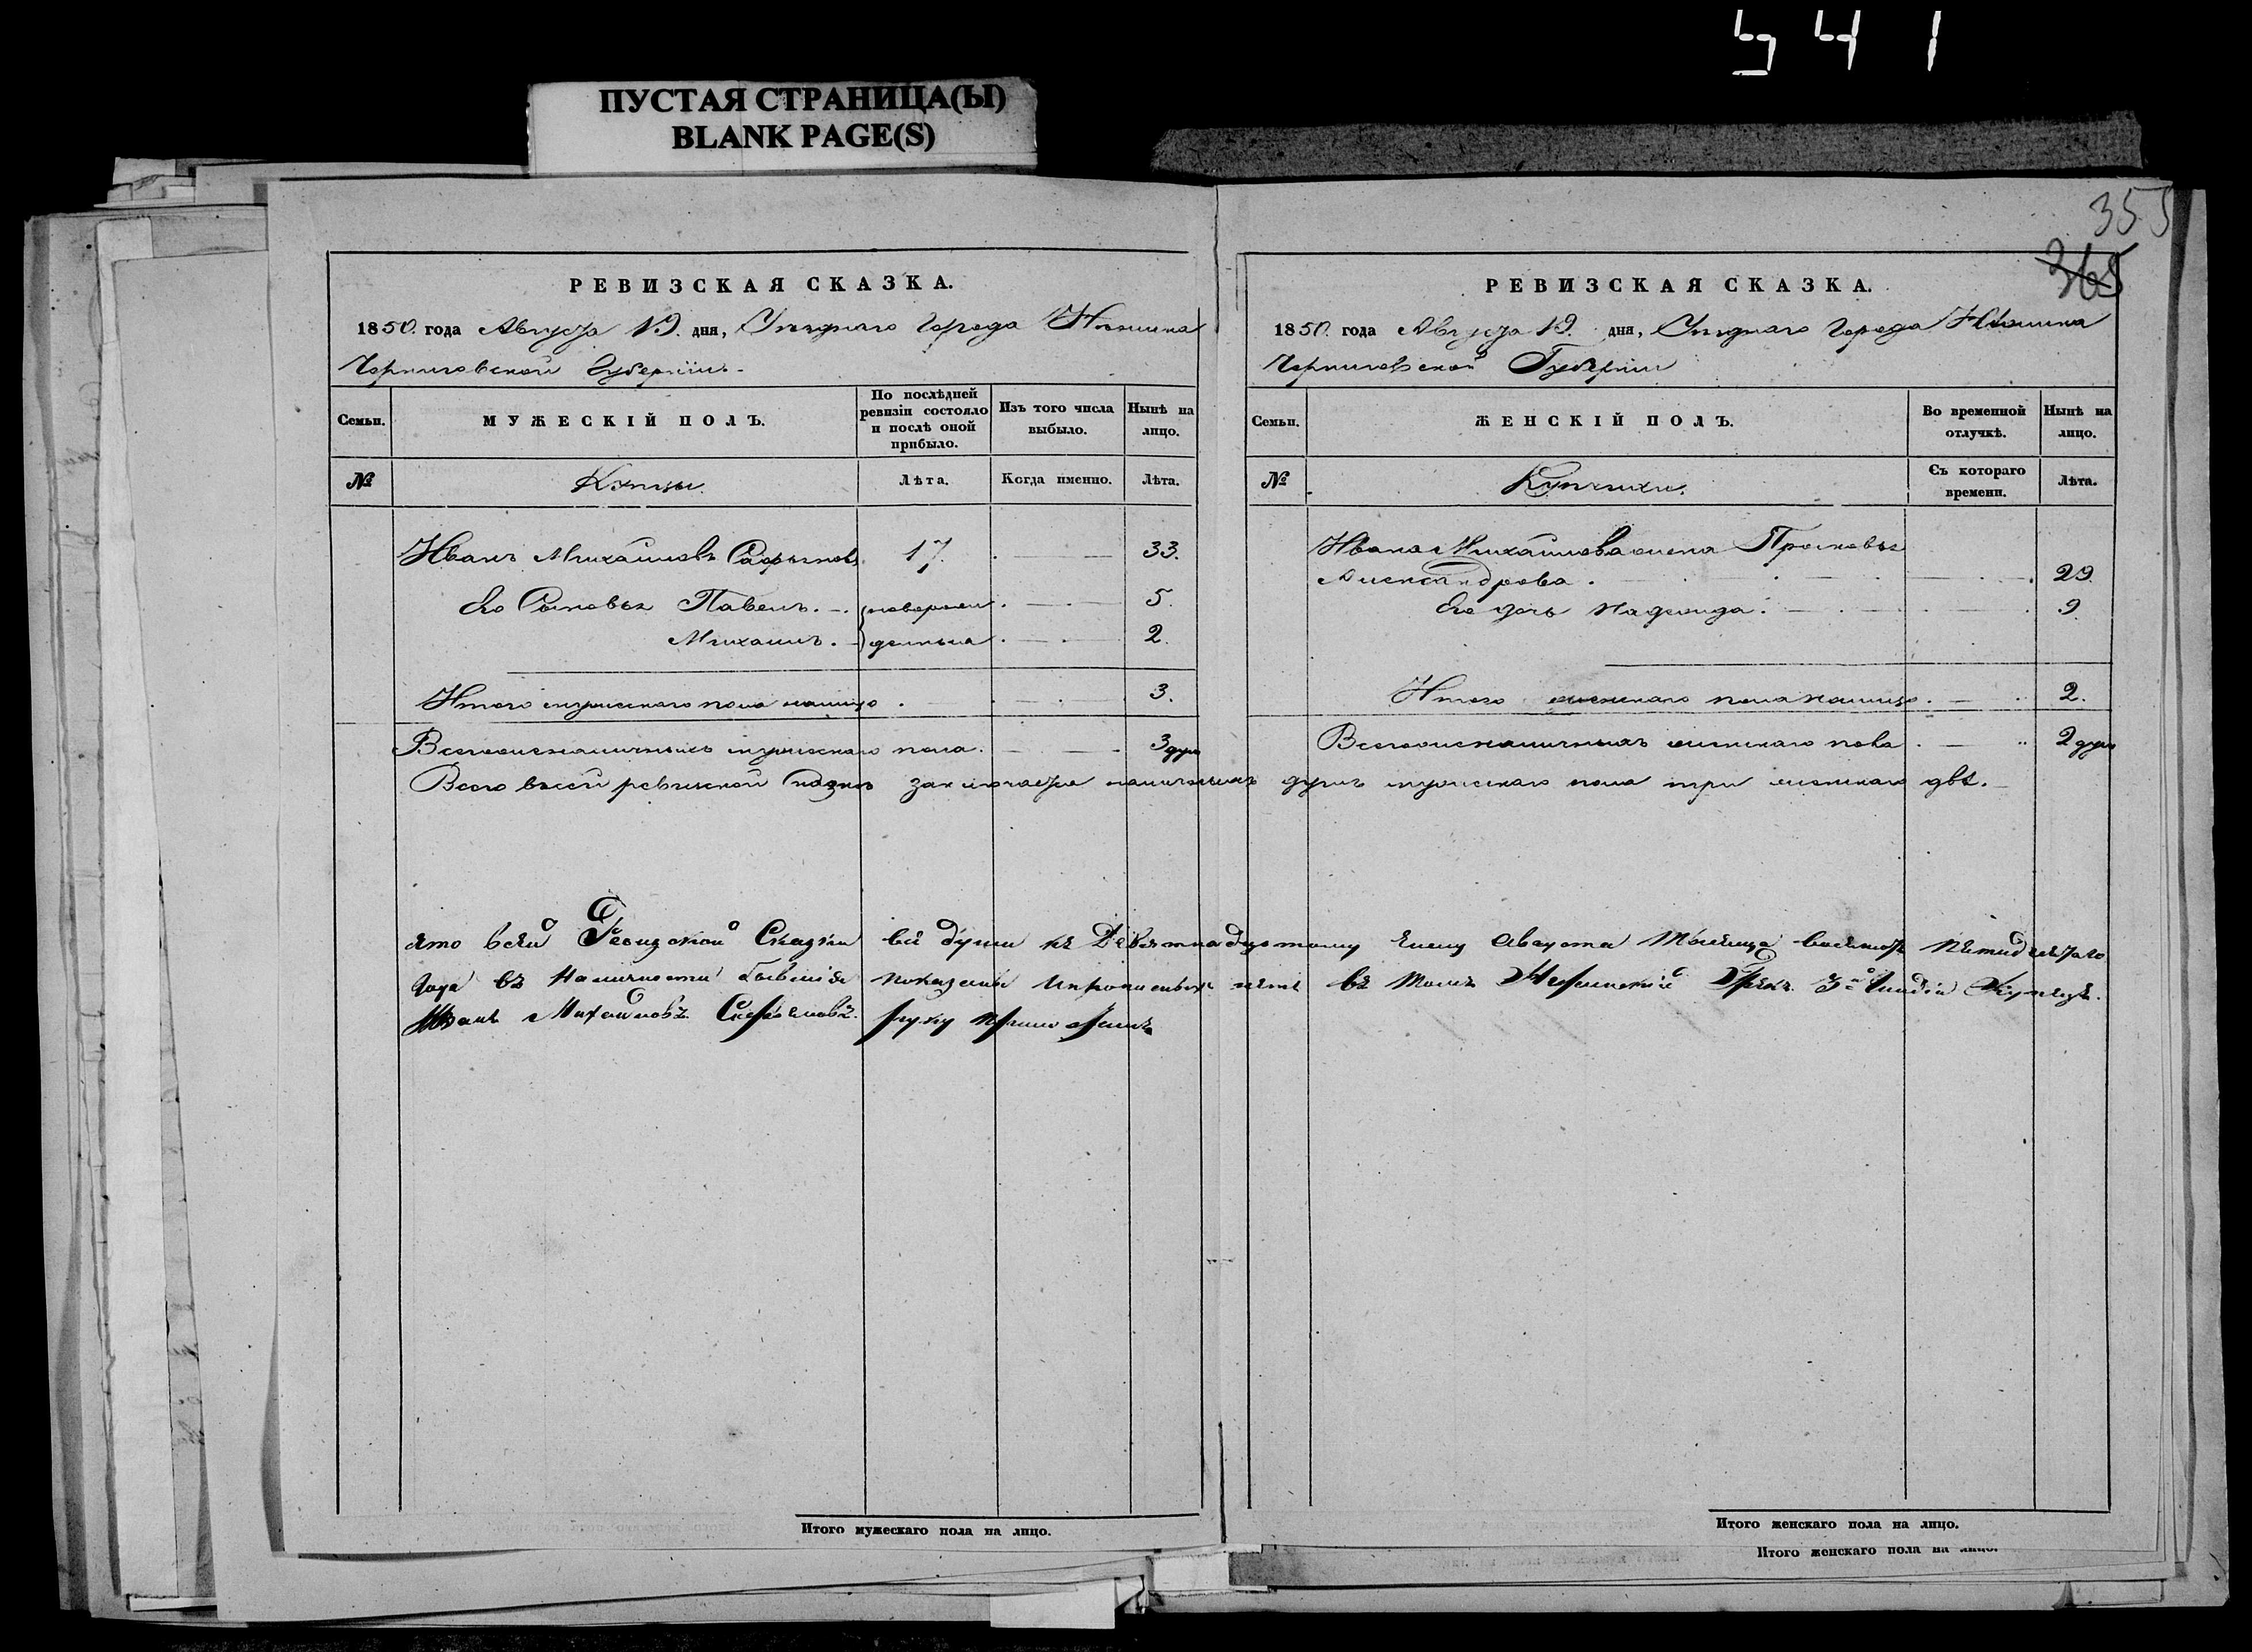 541
ПУСТАЯ СТРАНИЦА(Ы)
BLANK PAGE(S)
355
365
РЕВИЗСКАЯ СКАЗКА.
1850. года Августа 19. дня, Уезднаго Города Нѣжина
Черниговской Губерніи.
Семьи.
МУЖЕСКІЙ ПОЛЪ.
По послѣдней ревизіи состояло и послѣ оной прибыло.
Изъ того числа выбыло.
Нынѣ на лицо.
№
Купцы.
Лѣта.
Когда именно.
Лѣта.
Иванъ Михайловъ 17. 33.
Его Сыновья Павелъ. новорож 5.
Михаилъ. денныя 2.
Итого мужескаго пола налицо 3.
Всего наличныхъ мужескаго пола. 3 душ
РЕВИЗСКАЯ СКАЗКА.
1850. года Августа 19. дня, Уезднаго Города Нѣжина
Черниговской Губерніи
Семьи.
ЖЕНСКІЙ ПОЛЪ.
Во временной отлучкѣ.
Нынѣ на лицо.
№
Купчихи.
Съ котораго времени.
Лѣта.
Ивана Михайлова жена Просковья
Александрова. 29.
Его дочь Надежда. 9
Итого женскаго пола налицо. 2.
Всего наличныхъ женскаго пола 2 душ
Всего въ сей ревизской сказкѣ заключается наличныхъ душъ мужескаго пола три женскаго двѣ.
Что в сей Ревизской Сказки всѣ души къ Девятнадцатому числу Августа Месяца Пятидесятаго
года въ Наличности бывшія показаны и прописныхъ нетъ въ томъ Нежинскій Грекъ 3й Гилдіи Купецъ.
Иванъ Михайловъ руку приложилъ
Итого мужескаго пола на лицо.
Итого женскаго пола на лицо.
Итого женскаго пола на лицо.